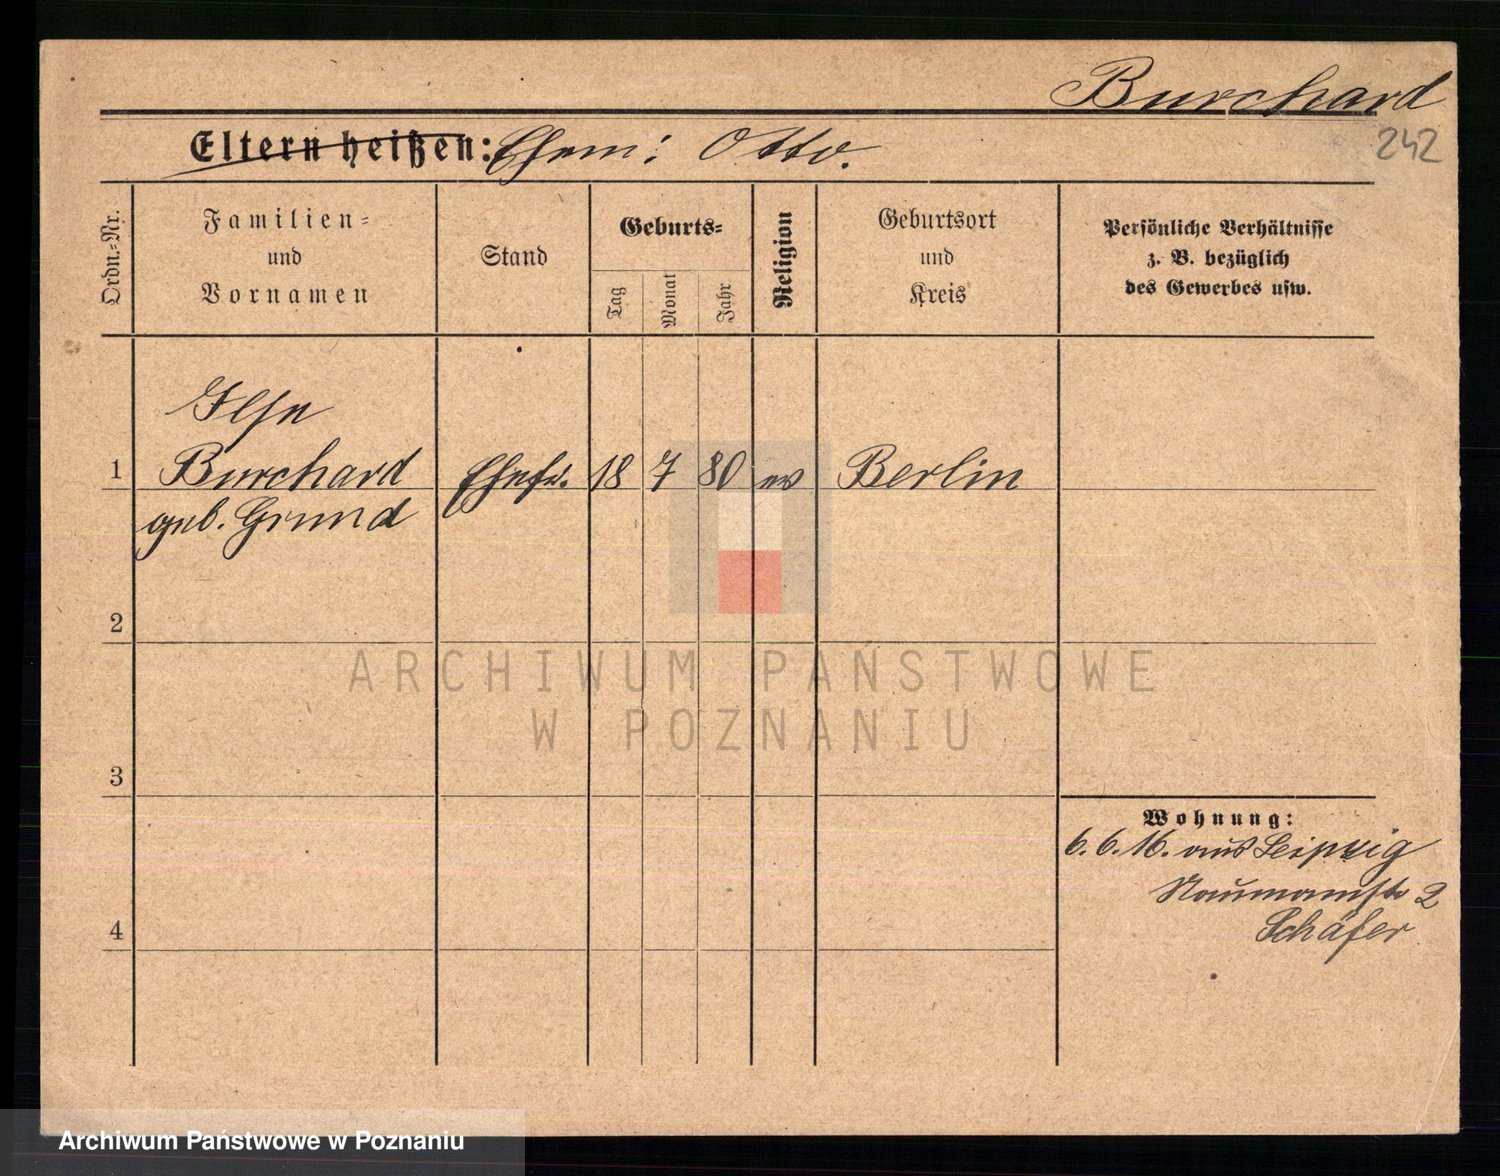 Burchard
242
Eltern heißen: Ehem: Otto.
Ordn.-Nr.
Familien-
und
Vornamen
Stand
Geburts-
Tag
Monat
Jahr
Religion
Geburtsort
und
Kreis
Persönliche Verhältnisse
z. B. bezüglich
des Gewerbes usw.
Ilse
1 Burchard Ehefr. 18 7 80 ev Berlin
geb. Grund
2
ARCHIWUM PAŃSTWOWE
W POZNANIU
3
Wohnung:
6.6.16. aus Leipzig
Naumannstr 2
Schäfer
4
Archiwum Państwowe w Poznaniu